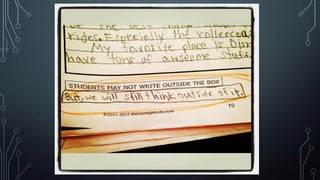 rides. Especially the rollercoa
My favorite place is Disn
have tons of awesome stuff
STUDENTS MAY NOT WRITE OUTSIDE THE BOX
But, we will still think outside of it.
19
©2011-2012 MentoringMinds.com